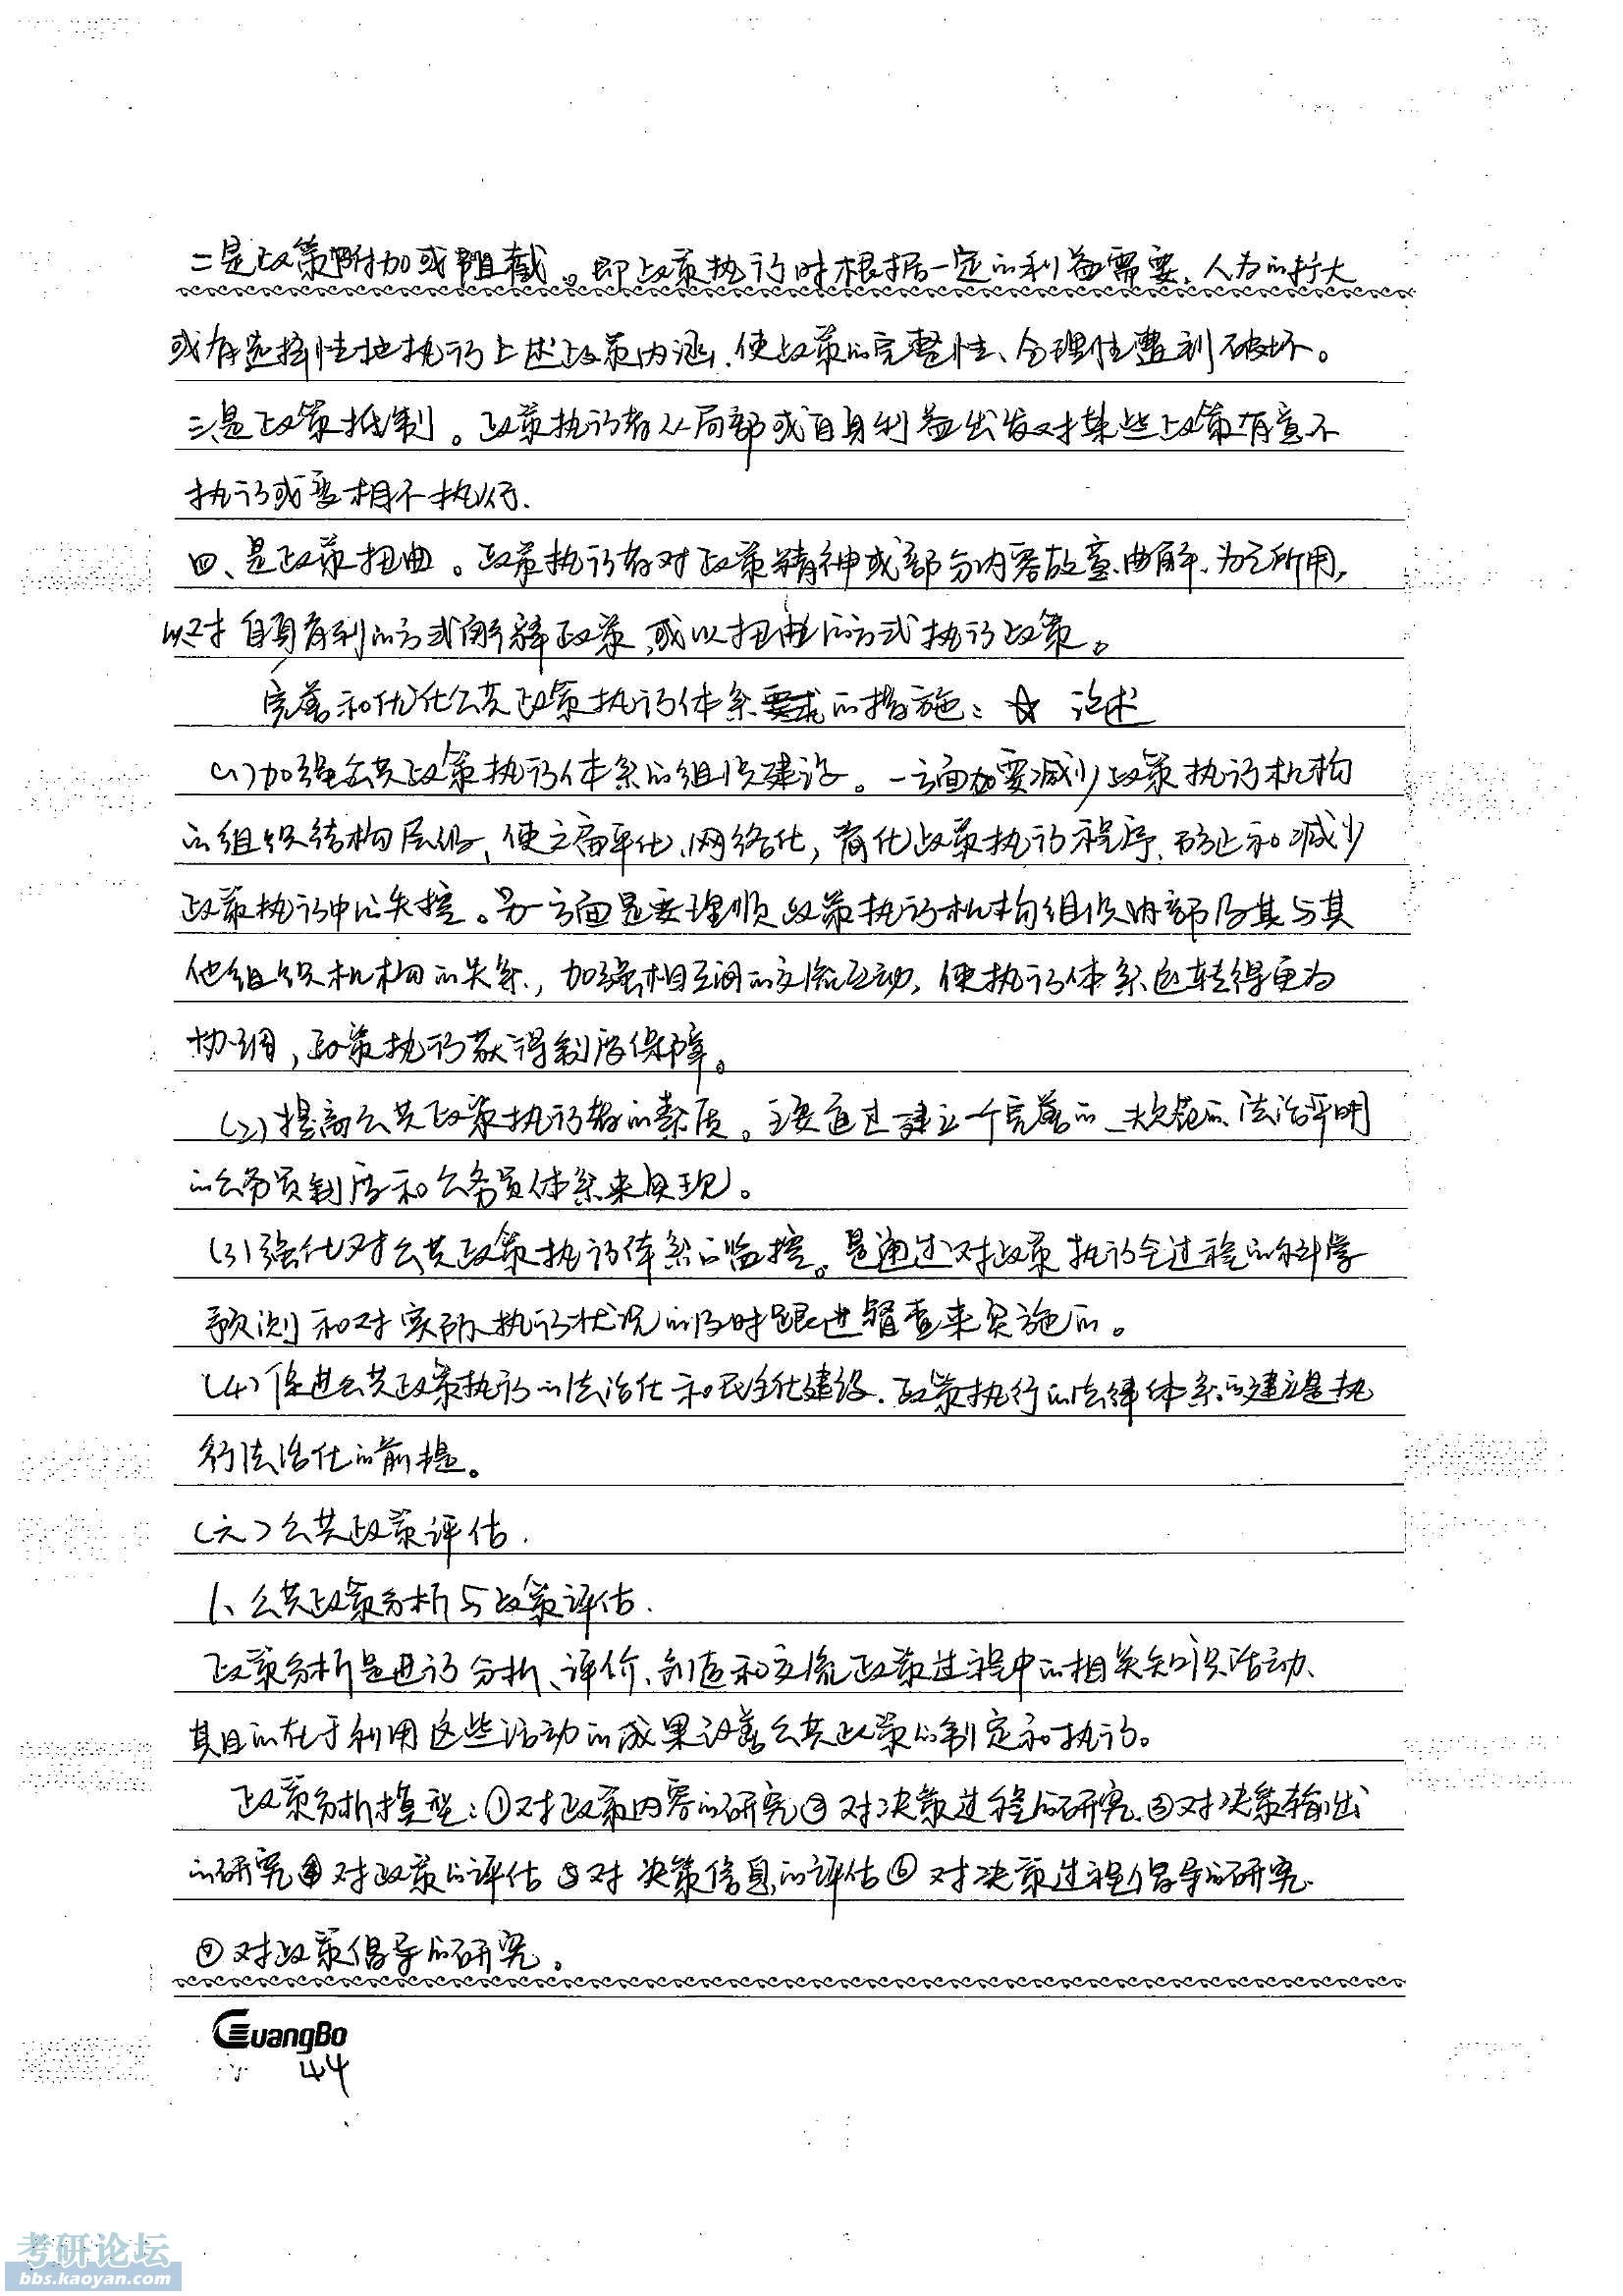 二是政策附加或阻截。即政策执行时根据一定的利益需要，人为的扩大
或有选择性地执行上述政策内涵，使政策的完整性、合理性遭到破坏。
三、是政策抵制。政策执行者从局部或自身利益出发对某些政策有意不
执行或变相不执行.
四、是政策扭曲。政策执行者对政策精神或部分内容故意曲解，为己所用，
以对自身有利的方式解释政策，或以扭曲的方式执行政策。
完善和优化公共政策执行体系的措施：☆ 论述
(1)加强公共政策执行体系的组织建设。一方面要减少政策执行机构
的组织结构层级，使之扁平化、网络化，简化政策执行程序，防止和减少
政策执行中的失控。另一方面是要理顺政策执行机构组织内部及其与其
他组织机构的关系，加强相互间的交流互动，使执行体系运转得更为
协调，政策执行获得制度保障。
(2)提高公共政策执行者的素质。主要通过建立一个完善的、规范的、法治严明
的公务员制度和公务员体系来实现。
(3)强化对公共政策执行体系的监控。是通过对政策执行全过程的科学
预测和对实际执行状况的及时跟进督查来实施的。
(4)促进公共政策执行的法治化和民主化建设.政策执行的法律体系的建立是执
行法治化的前提。
(六)公共政策评估.
1、公共政策分析与政策评估.
政策分析是进行分析、评价、创造和交流政策过程中的相关知识活动、
其目的在于利用这些活动的成果改善公共政策的制定和执行。
政策分析模型：①对政策内容的研究②对决策过程的研究.③对决策输出
的研究④对政策的评估⑤对决策信息的评估⑥对决策过程倡导的研究.
⑦对政策倡导的研究。
GuangBo
44
考研论坛
bbs.kaoyan.com